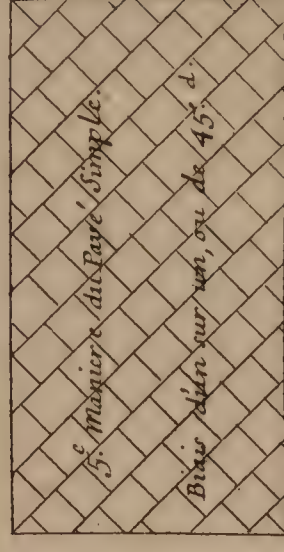 5.e Maniere du Pavé Simple.
Biais d'un sur un, ou de 45.d.